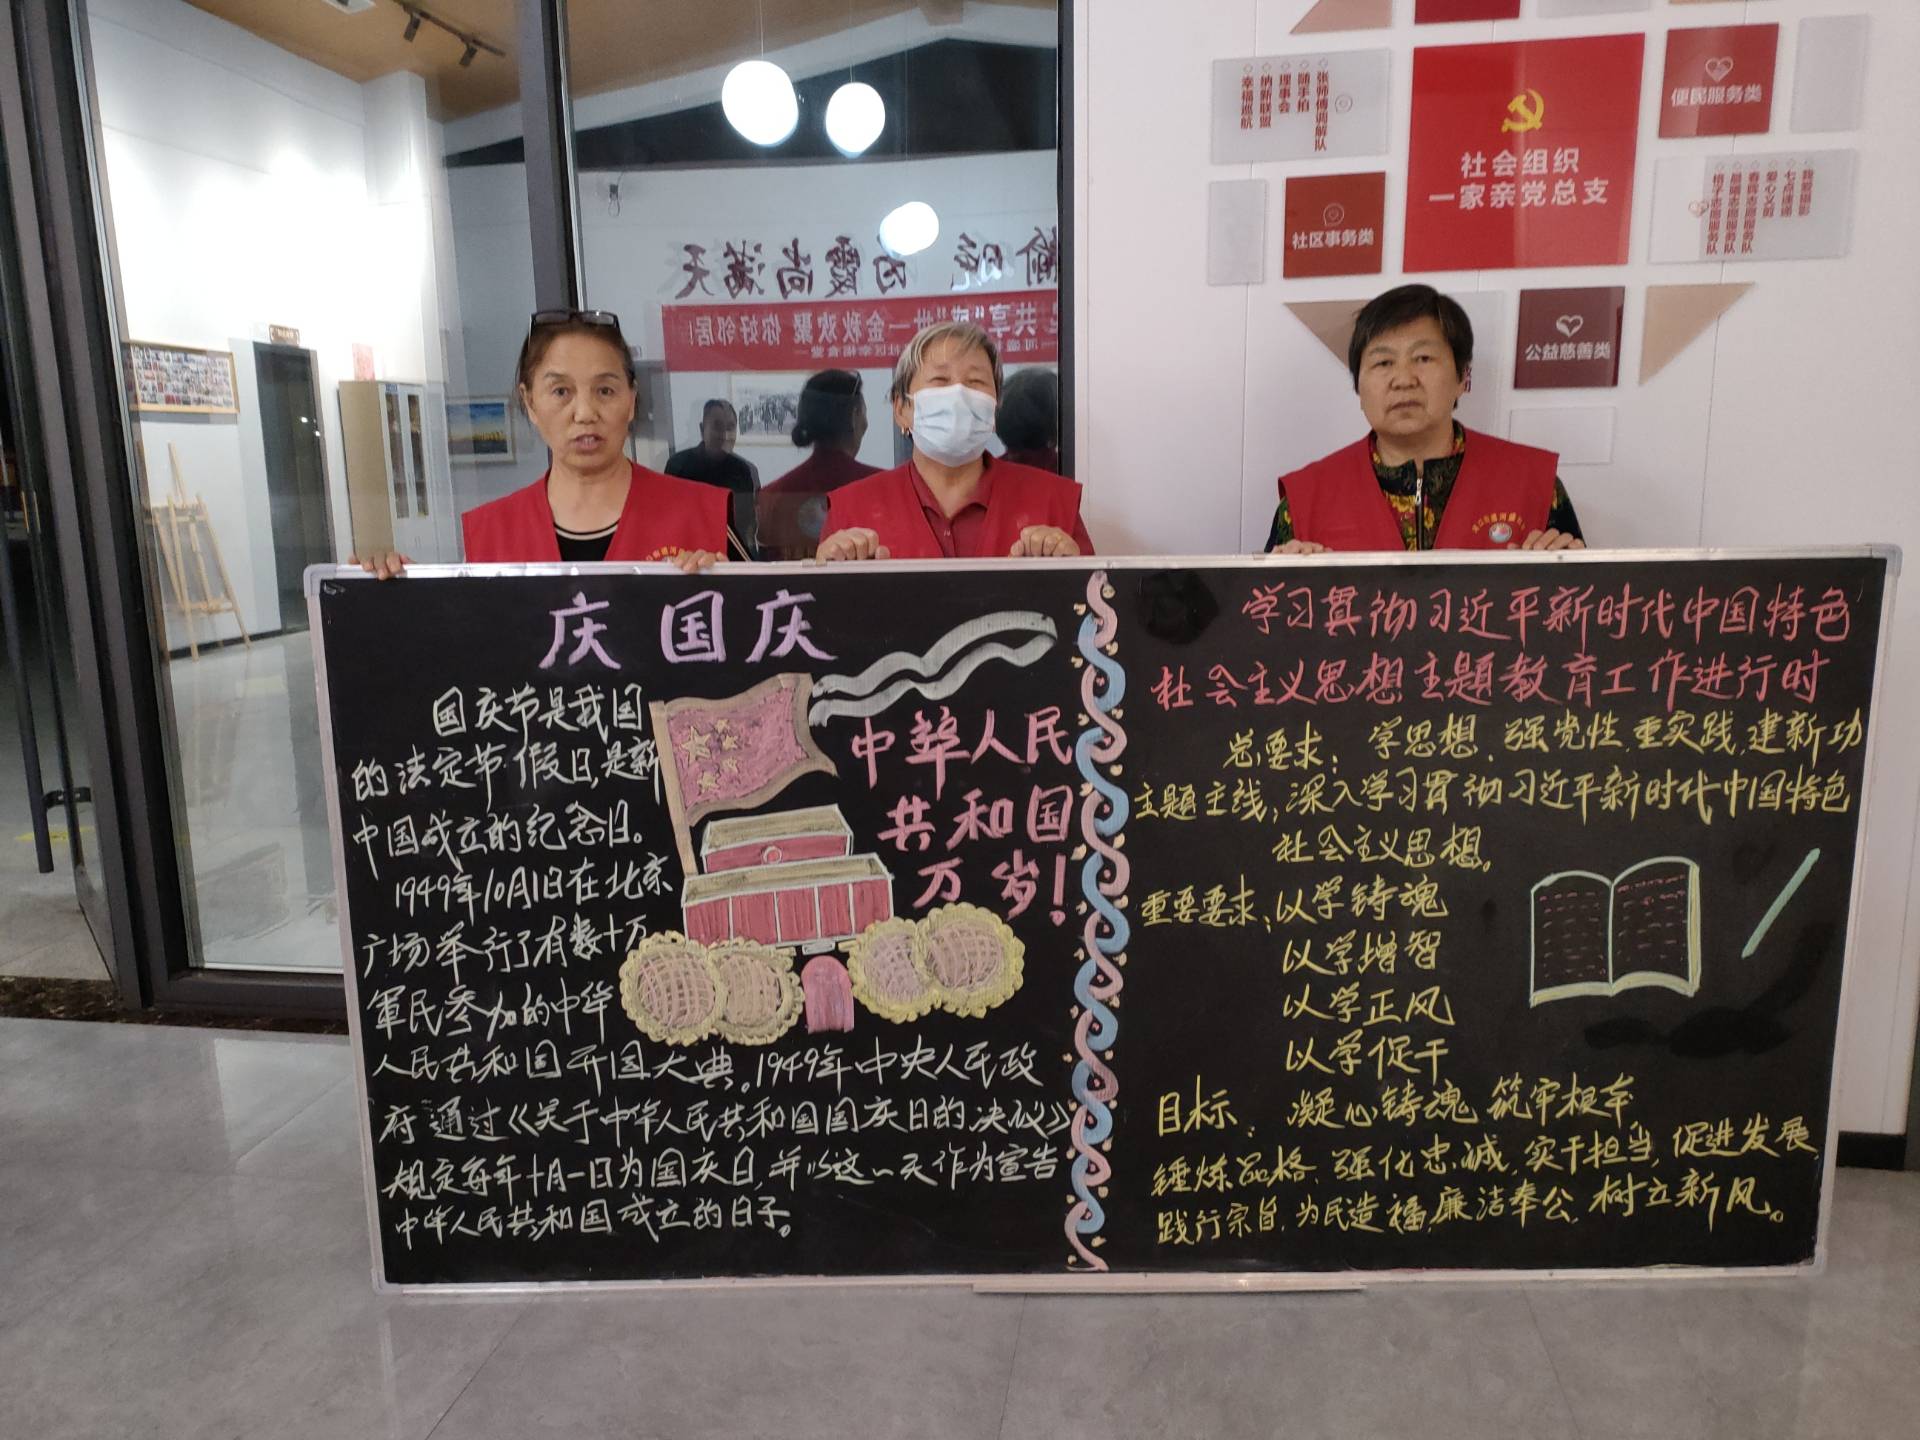 张师傅调解队
随手拍
理事会
纳新联盟
幸福巡航
社会组织
一家亲党总支
便民服务类
社区事务类
我爱摄影
七点速递
爱心义剪
春晖志愿服务队
晨曦志愿服务队
桔子志愿服务队
公益慈善类
霞尚满天
共享"盛"世—金秋欢聚 你好邻居!
庆国庆
国庆节是我国
的法定节假日,是新
中国成立的纪念日。
1949年10月1日在北京
广场举行了有数十万
軍民参加的中华
人民共和国开国大典。1949年中央人民政
府通过《关于中华人民共和国国庆日的决议》
规定每年十月一日为国庆日,并以这一天作为宣告
中华人民共和国成立的日子。
中华人民
共和国
万岁!
学习贯彻习近平新时代中国特色
社会主义思想主题教育工作进行时
总要求:学思想、强党性、重实践、建新功
主题主线:深入学习贯彻习近平新时代中国特色
社会主义思想。
重要要求:以学铸魂
以学增智
以学正风
以学促干
目标:凝心铸魂 筑牢根本
锤炼品格、强化忠诚,实干担当,促进发展
践行宗旨,为民造福,廉洁奉公,树立新风。